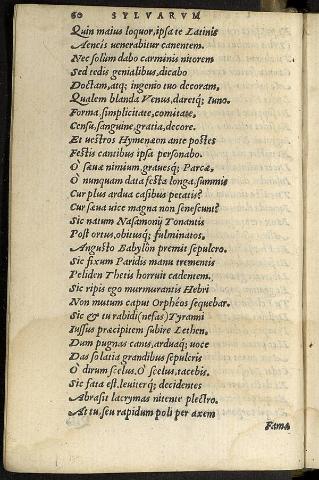 60 SYLVARVM
Quin maius loquor, ipsa te Latinis
Aeneis venerabitur canentem.
Nec solùm dabo carminis nitorem
Sed tedis genialibus, dicabo
Doctam, atq; ingenio tuo decoram,
Qualem blanda Venus, daretq; Iuno.
Forma, simplicitate, comitate,
Censu, sanguine, gratia, decore.
Et uestros Hymenæon ante postes
Festis cantibus ipsa personabo.
O' sæuæ nimium, grauesq; Parcæ,
O' nunquam data festa longa, summis
Cur plus ardua casibus petatis?
Cur sæua uice magna non senescunt?
Sic natum Nasamonij Tonantis
Post ortus, obitusq; fulminatos,
Angusto Babylòn premit sepulcro.
Sic fixum Paridis manu trementis
Peliden Thetis horruit cadentem.
Sic ripis ego murmurantis Hebri
Non mutum caput Orphéos sequebar.
Sic & tu rabidi (nefas) Tyranni
Iussus præcipitem subire Lethen.
Dum pugnas canis, arduaq; uoce
Das solatia grandibus sepulcris
O' dirum scelus, O' scelus, tacebis.
Sic fata est, leuiterq; decidentes
Abrasit lacrymas nitente plectro.
At tu, seu rapidum poli per axem
Fama